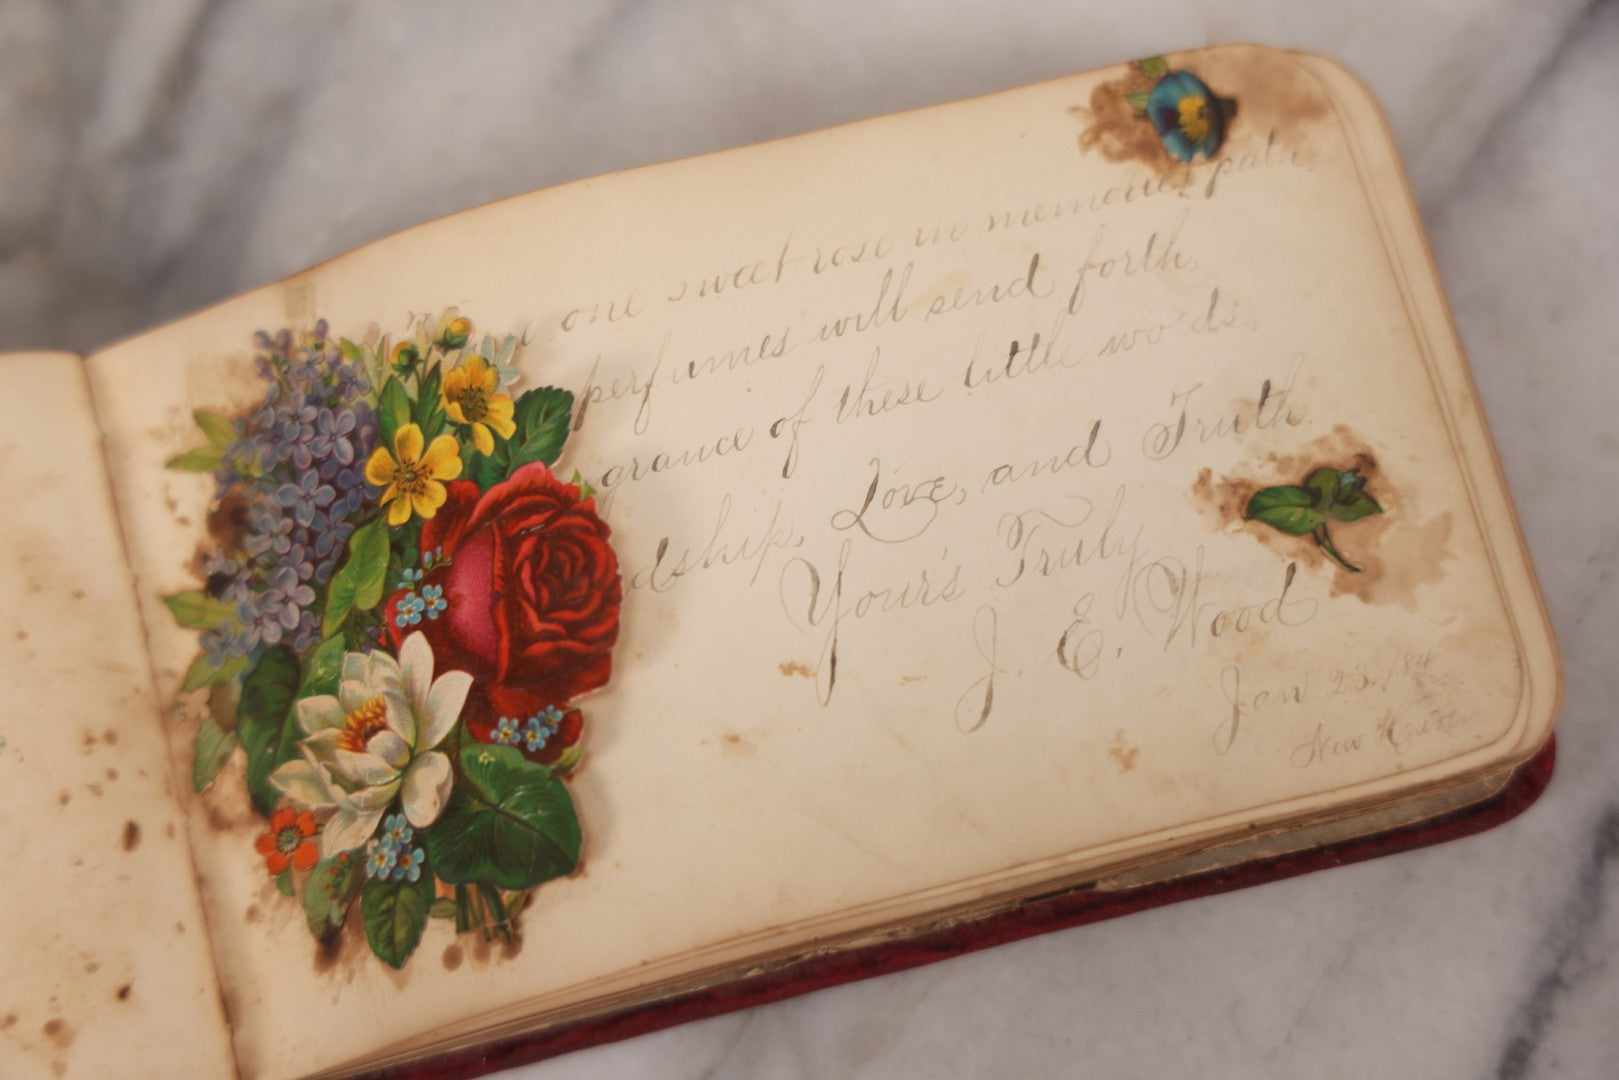 one sweet rose in memories path,
perfumes will send forth,
grance of these little words,
dship, Love, and Truth.
Your's Truly
J. E. Wood
Jan 23. /84
New Haven